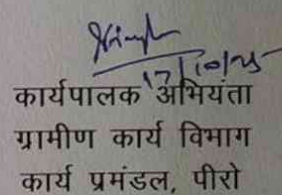 17/10/25
कार्यपालक अभियंता
ग्रामीण कार्य विभाग
कार्य प्रमंडल, पीरो